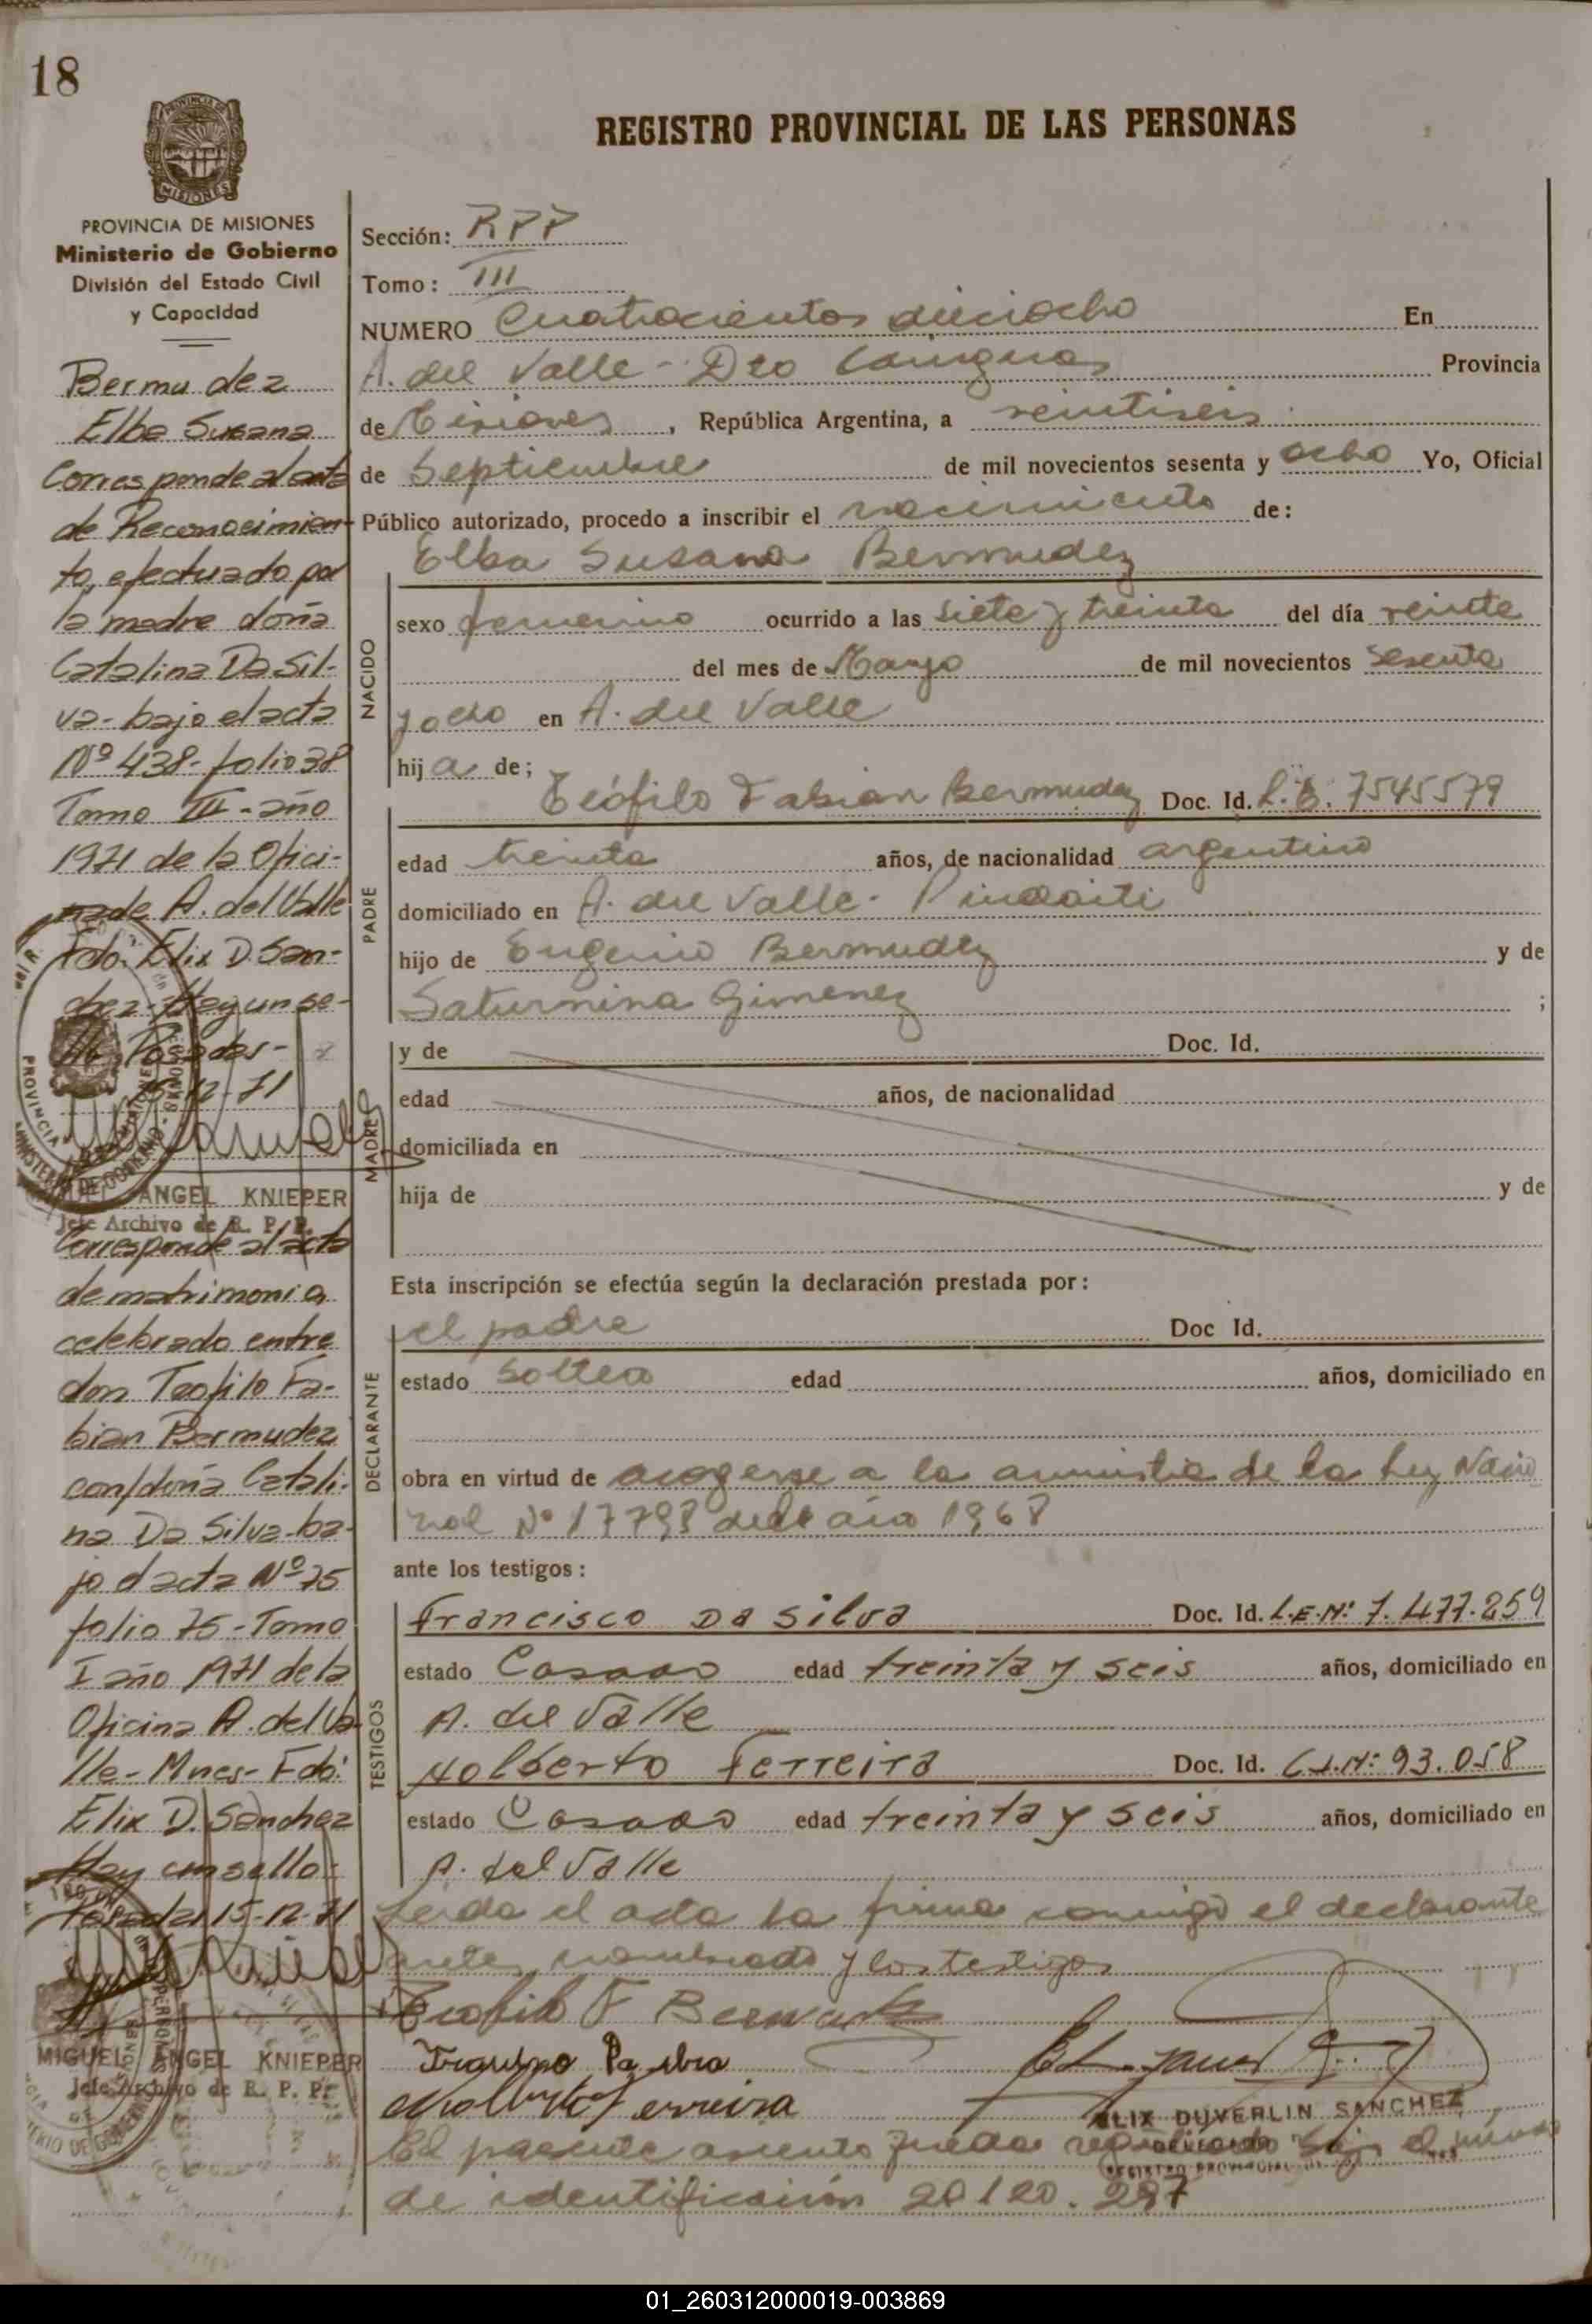 18
PROVINCIA DE MISIONES
Ministerio de Gobierno
División del Estado Civil
y Capacidad
Bermudez
Elba Susana
Corresponde al acta
de Reconocimien-
to, efectuado por
la madre doña
Catalina Da Sil-
va- bajo el acta
Nº 438- folio 38
Tomo III - año
1971 de la Ofici-
na de A. del Valle
Fdo. Elix D. San-
chez- Hay un se-
llo Posadas-
15-12-71
ANGEL KNIEPER
Jefe Archivo de R. P. P.
Corresponde al acta
de matrimonio,
celebrado entre
don Teofilo Fa-
bian Bermudez
con/doña Catali-
na Da Silva- ba-
jo el acta Nº 75
folio 75 - Tomo
I año 1971 de la
Oficina A. del Va-
lle- Mnes- Fdo:
Elix D. Sanchez
Hay un sello:
Posadas 15-12-71
MIGUEL ANGEL KNIEPER
Jefe Archivo de R. P. P.
REGISTRO PROVINCIAL DE LAS PERSONAS
Sección: RPP
Tomo: III
NUMERO Cuatrocientos dieciocho En
A. del Valle - Dto Cainguas Provincia
de Misiones, República Argentina, a veintiseis
de Septiembre de mil novecientos sesenta y ocho Yo, Oficial
Público autorizado, procedo a inscribir el nacimiento de:
Elba Susana Bermudez
NACIDO
sexo femenino ocurrido a las siete y treinta del día veinte
del mes de Marzo de mil novecientos sesenta
y ocho en A. del Valle
hija de;
PADRE
Teófilo Fabian Bermudez Doc. Id. L.E. 7545579
edad treinta años, de nacionalidad argentino
domiciliado en A. del Valle - Pindaiti
hijo de Eugenio Bermudez y de
Saturnina Gimenez ;
MADRE
y de Doc. Id.
edad años, de nacionalidad
domiciliada en
hija de y de
Esta inscripción se efectúa según la declaración prestada por:
DECLARANTE
el padre Doc Id.
estado soltero edad años, domiciliado en
obra en virtud de acogerse a la amnistia de la Ley Nacio
nal Nº 17793 del año 1968
ante los testigos:
TESTIGOS
Francisco Da Silva Doc. Id. L.E.Nº 7.477.259
estado Casado edad treinta y seis años, domiciliado en
A. del Valle
Nolberto Ferreira Doc. Id. C.I.Nº: 93.058
estado Casado edad treinta y seis años, domiciliado en
A. del Valle
Leida el acta la firma conmigo el declarante
antes nombrado y los testigos
Teofilo F Bermudez
Nolberto Ferreira
ELIX DUVERLIN SANCHEZ
REGISTRO PROVINCIAL
El presente asiento queda registrado bajo el número
de identificación 20.120.297
01_260312000019-003869